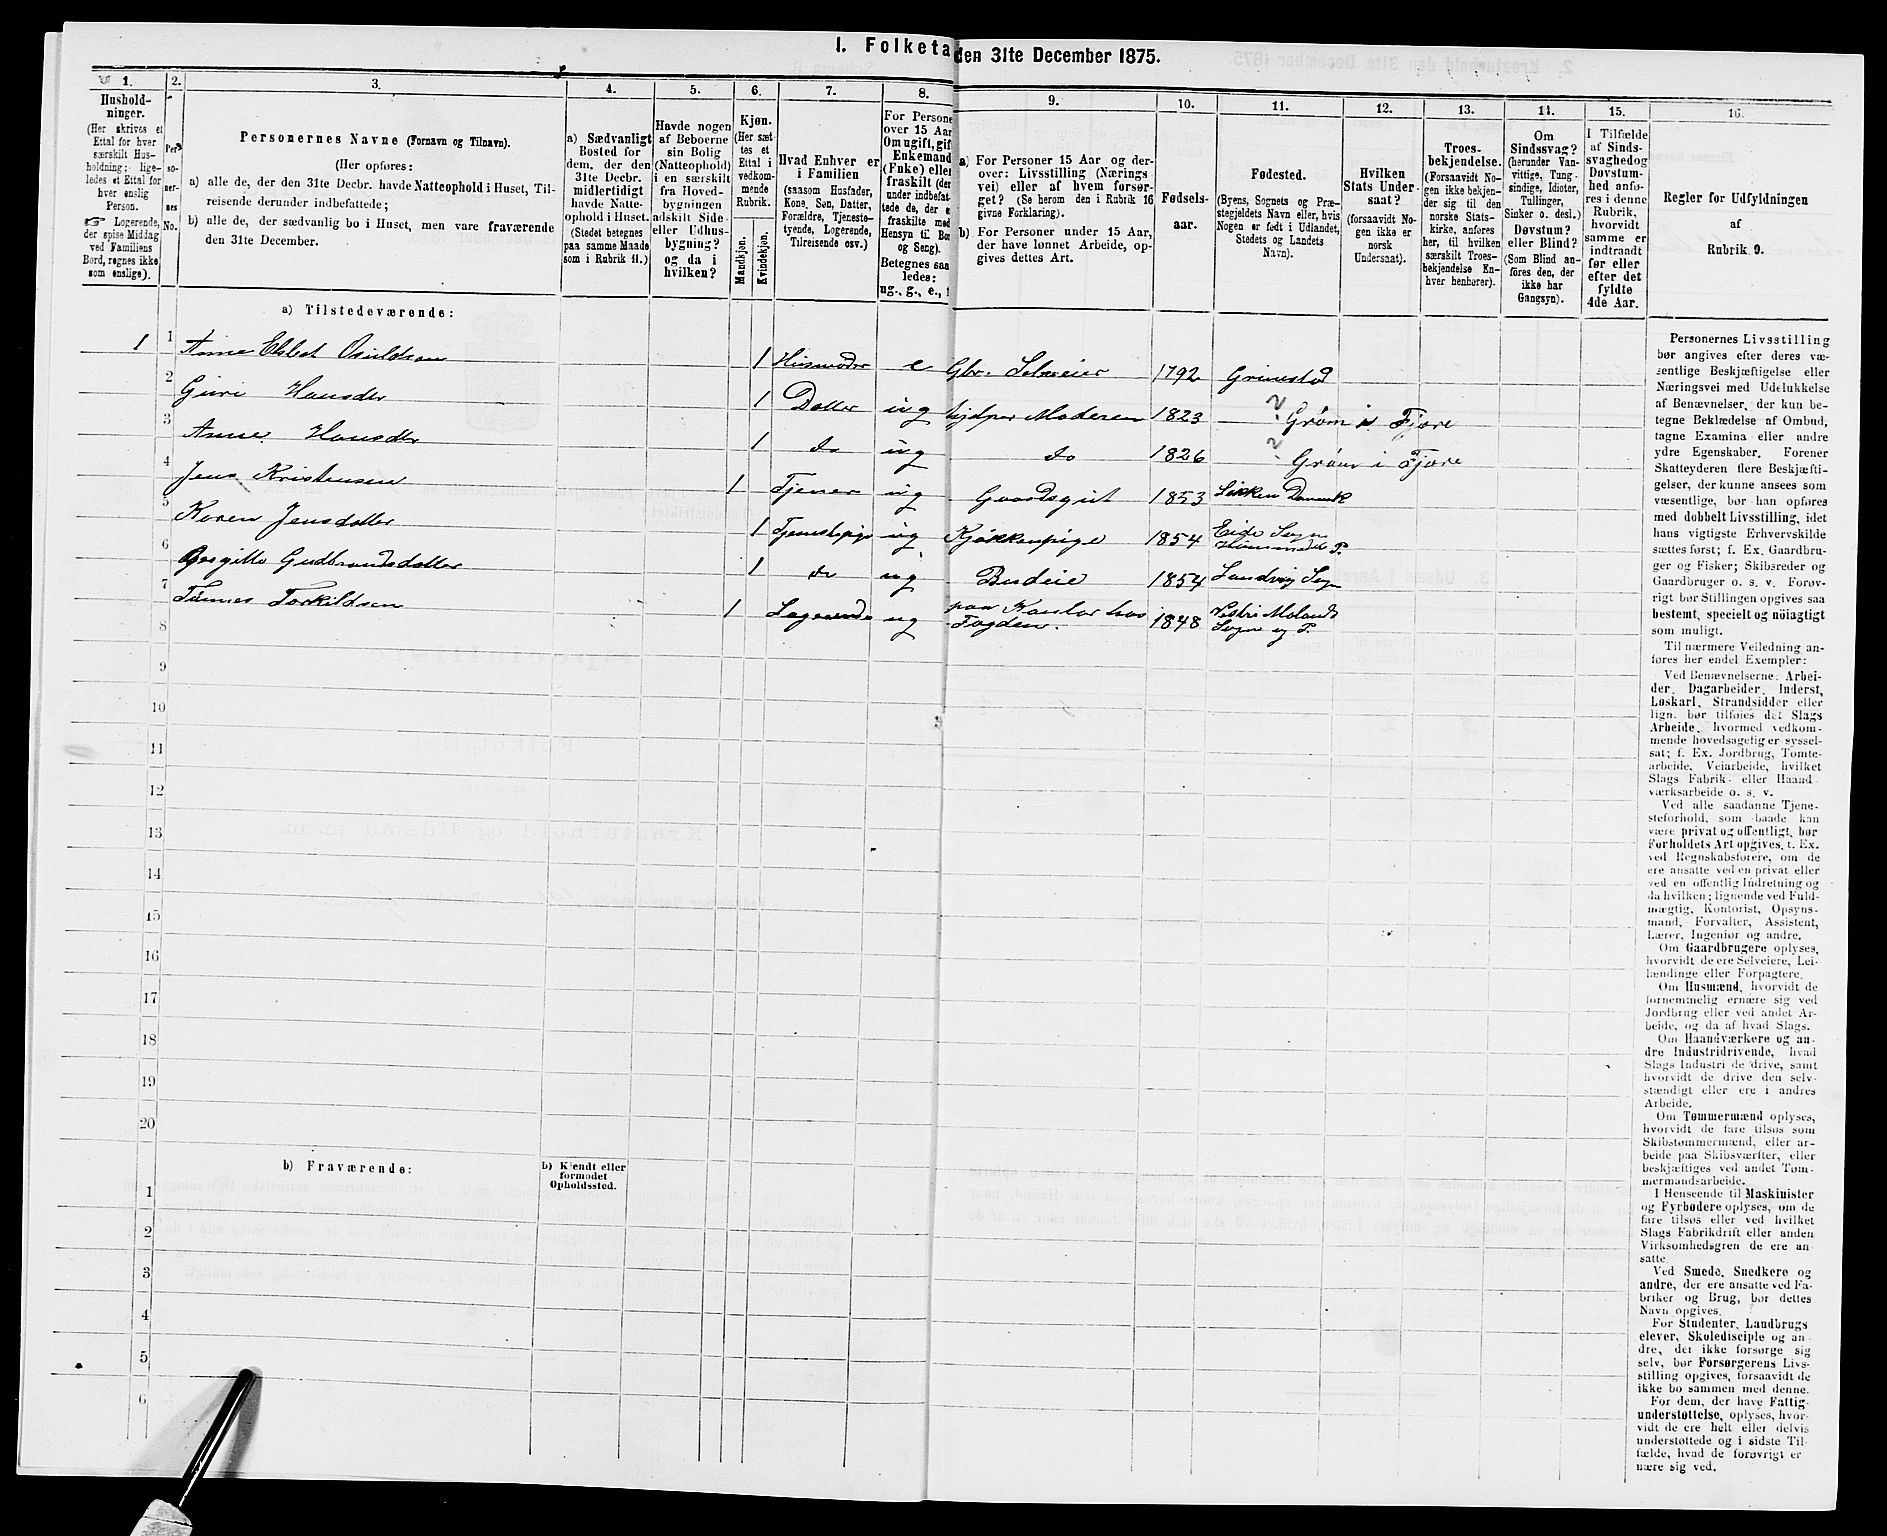 I. Folketa
den 31te December 1875.
1.
Hushold-
ninger.
(Her skrives et
Ettal for hver
særskilt Hus-
holdning; lige-
ledes et Ettal for
hver enslig
Person.
☞ Logerende,
der spise Middag
ved Familiens
Bord, regnes ikke
som enslige).
2.
Per-
so-
ner-
nes
No.
3.
Personernes Navne (Fornavn og Tilnavn).
(Her opføres:
a) alle de, der den 31te Decbr. havde Natteophold i Huset, Til-
reisende derunder indbefattede;
b) alle de, der sædvanlig bo i Huset, men vare fraværende
den 31te December.
4.
a) Sædvanligt
Bosted for
dem, der den
31te Decbr.
midlertidigt
havde Natte-
ophold i Huset.
(Stedet betegnes
paa samme Maade
som i Rubrik 11.)
5.
Havde nogen
af Beboerne
sin Bolig
(Natteophold)
i en særskilt
fra Hoved-
bygningen
adskilt Side-
eller Udhus-
bygning?
og da i
hvilken?
6.
Kjøn.
(Her sæt-
tes et
Ettal i
vedkom-
mende
Rubrik.
Mandkjøn.
Kvindekjøn.
7.
Hvad Enhver er
i Familien
(saasom Husfader,
Kone, Søn, Datter,
Forældre, Tjeneste-
tyende, Logerende,
Tilreisende osv.)
8.
For Persone
over 15 Aar
Om ugift, gif
Enkemand
(Enke) eller
fraskilt (der
under indbefat-
tede de, der e
fraskilte med
Hensyn til Bo
og Seng).
Betegnes saa
ledes:
ug., g., e., f
9.
a) For Personer 15 Aar og der-
over: Livsstilling (Nærings
vei) eller af hvem forsør-
get? (Se herom den i Rubrik 16
givne Forklaring).
b) For Personer under 15 Aar,
der have lønnet Arbeide, op-
gives dettes Art.
10.
Fødsels-
aar.
11.
Fødested.
(Byens, Sognets og Præ-
stegjeldets Navn eller, hvis
Nogen er født i Udlandet,
Stedets og Landets
Navn).
12.
Hvilken
Stats Under-
saat?
(forsaavidt No-
gen ikke er
norsk
Undersaat).
13.
Troes-
bekjendelse.
(Forsaavidt No-
gen ikke bekjen-
der sig til den
norske Stats-
kirke, anføres
her, til hvilken
særskilt Troes-
bekjendelse En-
hver henhører).
14.
Om
Sindssvag?
(herunder Van-
vittige, Tung-
sindige, Idioter,
Tullinger,
Sinker o. desl.)
Døvstum?
eller Blind?
(Som Blind an-
føres den, der
ikke har
Gangsyn).
15.
I Tilfælde
af Sinds-
svaghed og
Døvstum-
hed anfø-
res i denne
Rubrik,
hvorvidt
samme er
indtraadt
før eller
efter det
fyldte
4de Aar.
16.
Regler for Udfyldningen
af
Rubrik 9.
a) Tilstedeværende:
1 1 Anne Elsbet Osuldsen 1 Husmoder e Gbr. Selveier 1792 Grimstad
2 Guri Hansdtr 1 Datter ug hjelper Moderen 1823 ? Grøm i Fjære
3 Anne Hansdtr 1 do ug do 1826 ? Grøm i Fjære
4 Jens Kristensen 1 Tjener ug Gaardsgut 1853 Løkken Danmk
5 Karen Jensdatter 1 Tjenestepige ug Kjøkkenpige 1854 Eide Sogn
P.
6 Gudbrandsdatter 1 do ug Budeie 1854 Landvig Sogn
7 Tønnes Torkildsen 1 Logerende ug paa Kontor hos
Fogden. 1848 Vestre Molands
Sogn og P.
8
9
10
11
12
13
14
15
16
17
18
19
20
b) Fraværende:
b) Kjendt eller
formodet
Opholdssted.
1
2
3
4
5
6
Personernes Livsstilling
bør angives efter deres væ-
sentlige Beskjæftigelse eller
Næringsvei med Udelukkelse
af Benævnelser, der kun be-
tegne Beklædelse af Ombud,
tagne Examina eller andre
ydre Egenskaber. Forener
Skatteyderen flere Beskjæfti-
gelser, der kunne ansees som
væsentlige, bør han opføres
med dobbelt Livsstilling, idet
hans vigtigste Erhvervskilde
sættes først; f. Ex. Gaardbru-
ger og Fisker; Skibsreder og
Gaardbruger o. s. v. Forøv-
rigt bør Stillingen opgives saa
bestemt, specielt og nöiagtigt
som muligt.
Til nærmere Veiledning an-
føres her endel Exempler:
Ved Benævnelserne: Arbei-
der, Dagarbeider, Inderst,
Løskarl, Strandsidder eller
lign. bør tilføies det Slags
Arbeide, hvormed vedkom-
mende hovedsagelig er syssel-
sat; f. Ex. Jordbrug, Tomte-
arbeide, Veiarbeide, hvilket
Slags Fabrik- eller Haand
værksarbeide o. s. v.
Ved alle saadanne Tjene-
steforhold, som baade kan
være privat og offentligt, bør
Forholdets Art opgives, t. Ex.
ved Regnskabsførere, om de
ere ansatte ved en privat eller
ved en offentlig Indretning og
da hvilken; lignende ved Fuld-
mægtig, Kontorist, Opsyns-
mand, Forvalter, Assistent,
Lærer, Ingeniør og andre.
Om Gaardbrugere oplyses,
hvorvidt de ere Selveiere, Lei-
lændinge eller Forpagtere.
Om Husmænd, hvorvidt de
fornemmelig ernære sig ved
Jordbrug eller ved andet Ar-
beide, og da af hvad Slags.
Om Haandværkere og an-
dre Industridrivende, hvad
Slags Industri de drive, samt
hvorvidt de drive den selv-
stændigt eller ere i andres
Arbeide.
Om Tømmermænd oplyses,
hvorvidt de fare tilsøs som
Skibstømmermænd, eller ar-
beide paa Skibsværfter, eller
beskjæftiges ved andet Tøm-
mermandsarbeide.
I Henseende til Maskinister
og Fyrbødere oplyses, om de
fare tilsøs eller ved hvilket
Slags Fabrikdrift eller anden
Virksomhedsgren de ere an-
satte.
Ved Smede, Snedkere og
andre, der ere ansatte ved Fa-
briker og Brug, bør dettes
Navn opgives.
For Studenter, Landbrugs
elever, Skoledisciple og an-
dre, der ikke forsørge sig
selv, bør Forsørgerens Livs-
stilling opgives, forsaavidt de
ikke bo sammen med denne.
For dem, der have Fattig-
understøttelse, oplyses, hvor-
vidt de ere helt eller delvis
understøttede og i sidste Til-
fælde, hvad de forøvrigt er
nære sig ved.